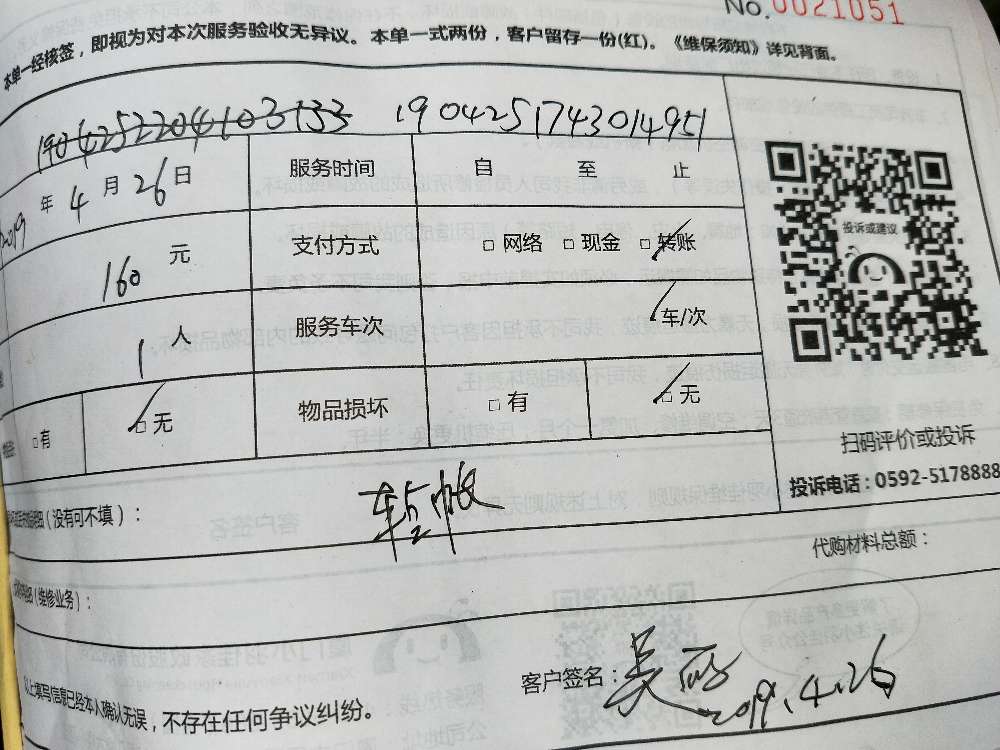 No.0021051
本单一经核签，即视为对本次服务验收无异议。本单一式两份，客户留存一份(红)。《维保须知》详见背面。
1904252204103133 1904251743014951
2019年4月26日 服务时间 自 至 止
160元 支付方式 □网络 □现金 □转账
1人 服务车次 车/次
□有 □无 物品损坏 □有 □无
投诉或建议
扫码评价或投诉
投诉电话：0592-5178888
（没有可不填）：
代购材料总额：
（维修业务）：
客户签名：吴
2019.4.26
以上填写信息已经本人确认无误，不存在任何争议纠纷。